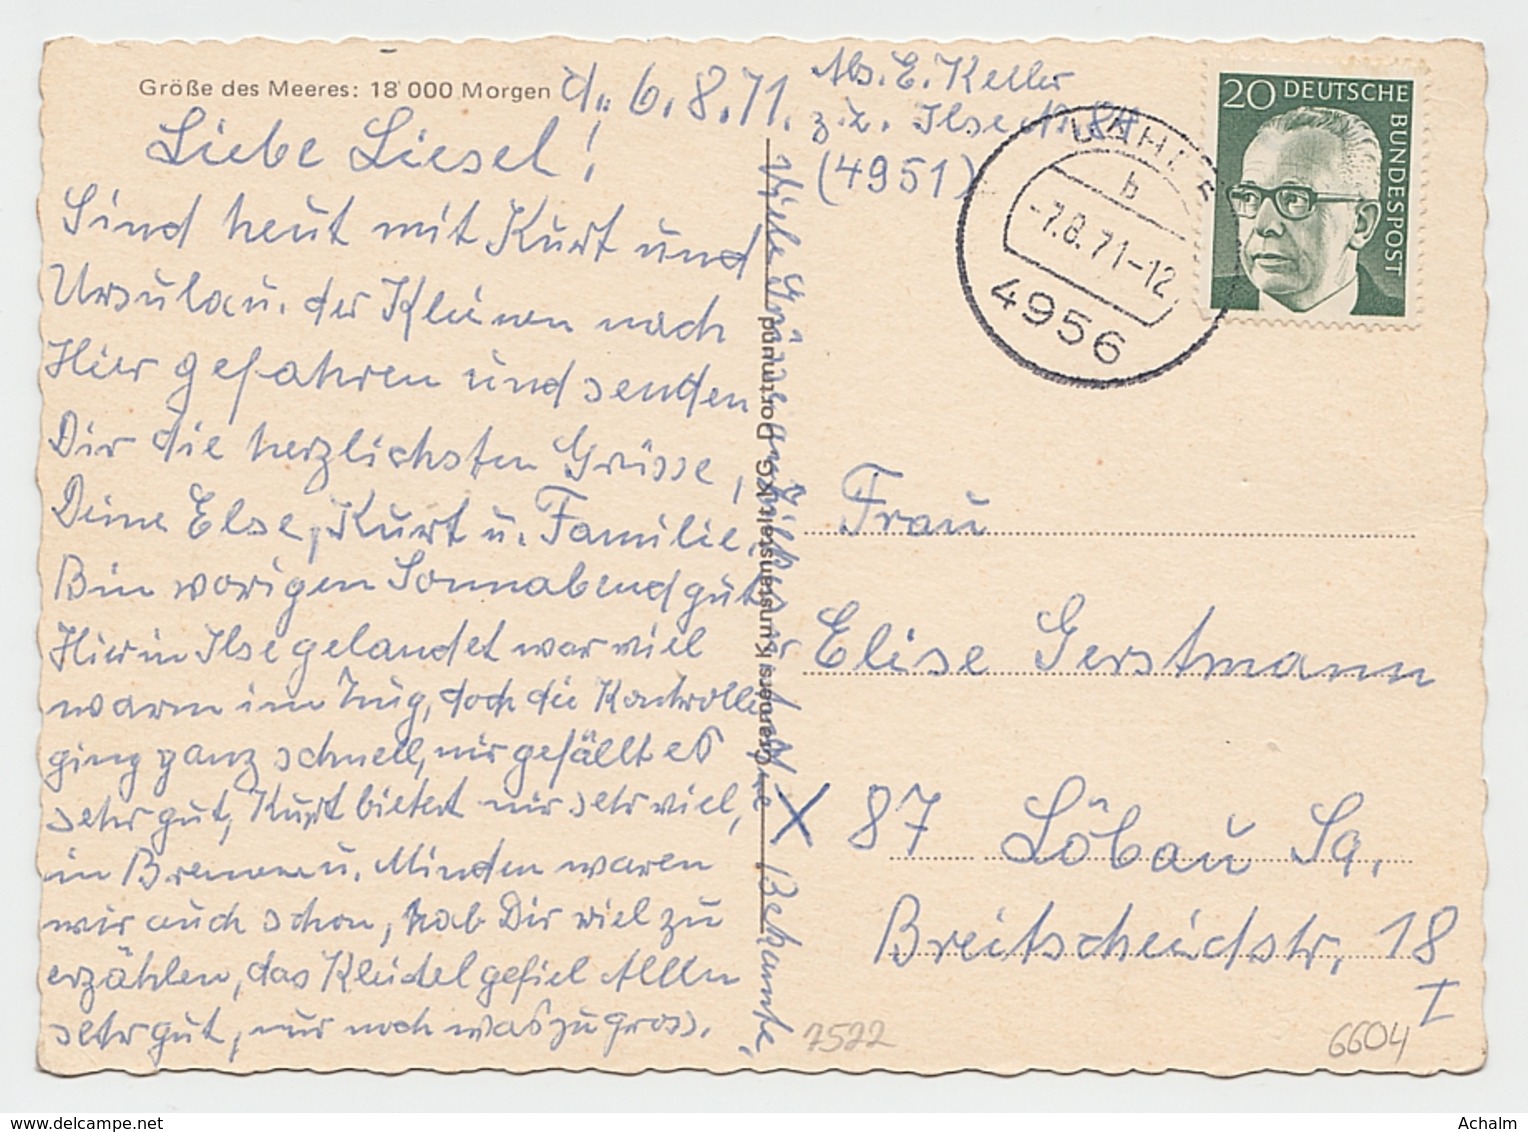 Größe des Meeres: 18 000 Morgen
d. 6.8.71.
Liebe Liesel!
Sind heut mit Kurt und
Ursula u. der Kleinen nach
Hier gefahren und senden
Dir die herzlichsten Grüsse,
Deine Else, Kurt u. Familie.
Bin vorigen Sonnabend gut
Hier in Ilse gelandet war viel
warm im Zug, doch die Kontrolle
ging ganz schnell, mir gefällt es
sehr gut, Kurt bietet mir sehr viel,
in Bremen u. Minden waren
wir auch schon, hab Dir viel zu
erzählen, das Kleidel gefiel Allen
sehr gut, nur noch was zu gross.
Viele Grüsse an
Bekannte,
Cramers Kunstanstalt KG, Dortmund
Abs. E. Keller
z.z. Ilse N. 81
(4951)
b
-7.8.71-12
4956
20 DEUTSCHE
BUNDESPOST
Frau
Elise Gerstmann
X 87 Löbau Sa.
Breitscheidstr. 18
I
7522
6604
delcampe.net
Achalm